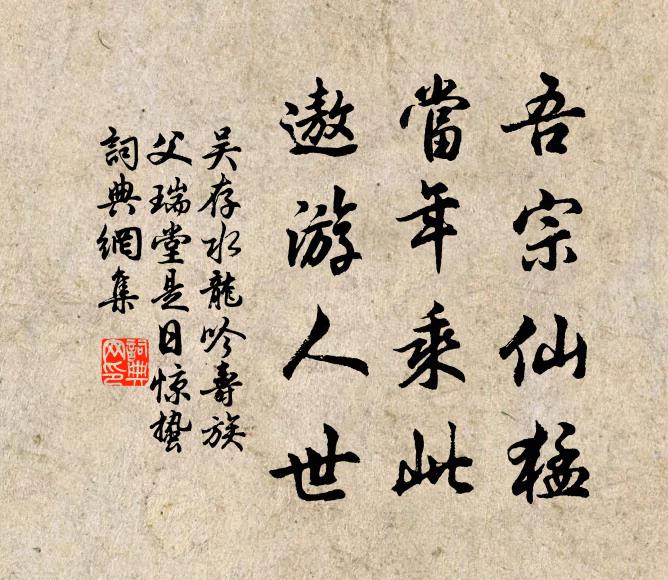 吾宗仙猛
當年乘此
遨游人世
吴存水龍吟壽族
父瑞堂是日惊蛰
詞典網集
詞典网印